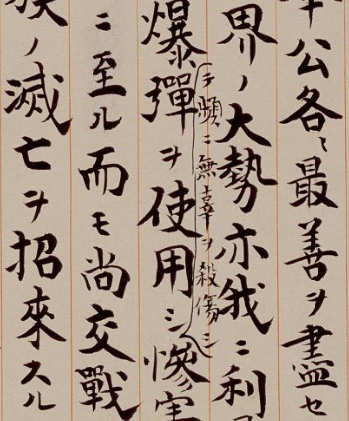 公各〻最善ヲ盡セ
界ノ大勢亦我ニ利
ヲ頻ニ無辜ヲ殺傷シ
爆彈ヲ使用シ慘害
ニ至ル而モ尚交戰
族ノ滅亡ヲ招來スル